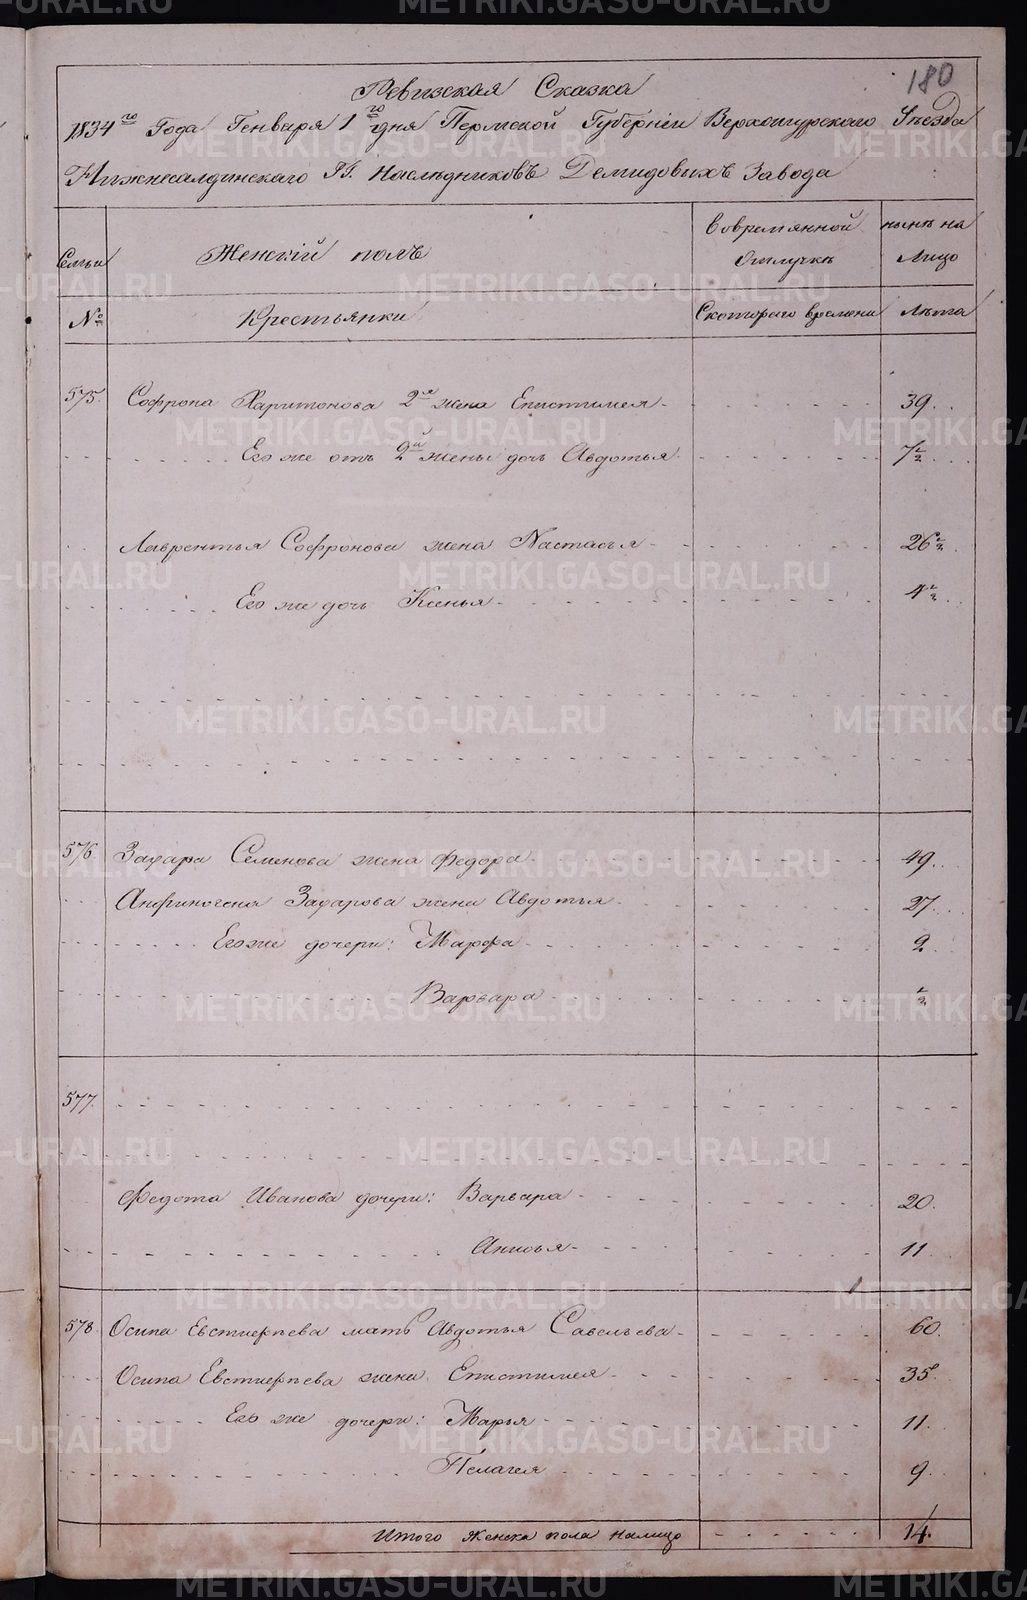 180
Ревизская Сказка
1834го Года Генваря 1го дня Пермской Губернiи Верхотурскаго Уѣзда
Нижнесалдинскаго ГГ. Наслѣдниковъ Демидовыхъ Завода
Семьи
Женскiй полъ
Вовремянной Отлучкѣ
нынѣ на Лицо
№
Крестьянки
Скотораго времени
Лѣта
575. Софрона Харитонова 2я жена Епистимея 39.
Его же отъ 2й жены дочь Авдотья 7½
Лаврентья Софронова жена Настасья 26½
Его же дочь Ксенья ½
576 Захара Семенова жена Федора 49.
Захарова жена Авдотья 27.
Его же дочери: Марфа 2
Варвара ½
577.
Федота Иванова дочери: Варвара 20.
Анисья 11
578 Осипа Евстигнѣева мать Авдотья Савельева 60.
Осипа Евстигнѣева жена Епистимея 35
Его же дочери: Марья 11.
Пелагея 9.
Итого женска пола налицо 14.
METRIKI.GASO-URAL.RU